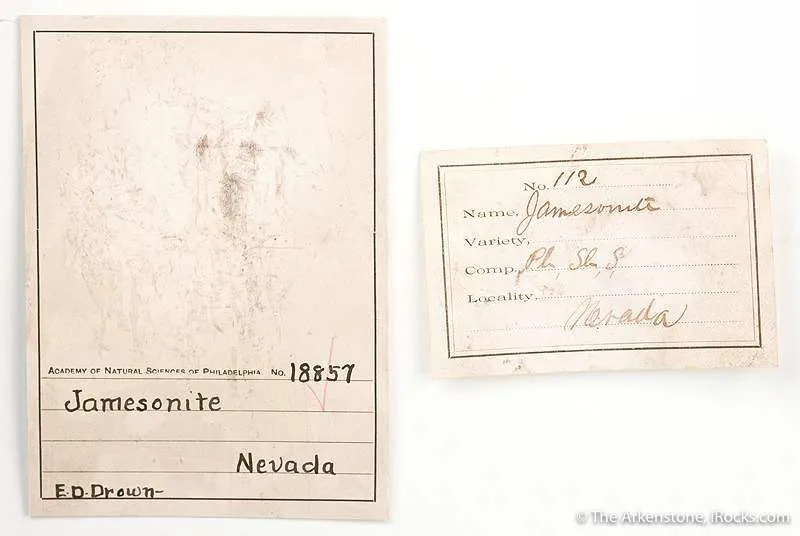 ACADEMY OF NATURAL SCIENCES OF PHILADELPHIA No. 18857
Jamesonite
Nevada
E.D. Drown-
No. 112
Name, Jamesonite
Variety,
Comp. Pb, Sb, S,
Locality,
Nevada
© The Arkenstone, iRocks.com